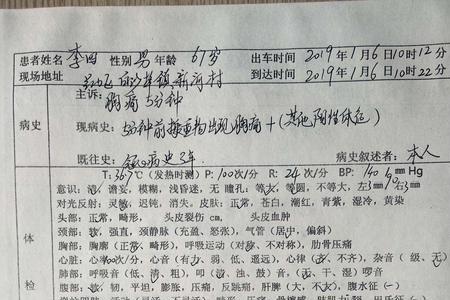 患者姓名 李田 性别 男 年龄 67岁 出车时间 2019年1月6日10时12分
现场地址 新河村 到达时间 2019年1月6日10时22分
主诉: 胸痛5分钟
病史 现病史: 5分钟前搬重物出现胸痛 + (其他阳性体征)
既往史: 冠心病史3年. 病史叙述者: 本人
T: 36.5℃ (发热时测) P: 100次/分 R: 24次/分 BP: 140/ mm Hg
意识: 清, 谵妄, 模糊, 浅昏迷, 无 瞳孔: 等大, 等圆, 不等大, 左3 右3
对光反射: 灵敏, 迟钝, 消失. 皮肤: 正常, 苍白, 潮红, 青紫, 湿冷, 黄染
头部: 正常, 畸形, 头皮裂伤 cm, 头皮血肿
体 颈部: 软, 强直, 颈静脉 (充盈、怒张), 气管 (居中, 偏斜)
胸部: 胸廓 (正常、畸形), 呼吸运动 (对称、不对称), 肋骨压痛
心脏: 心率100次/分, 心音 (有力、弱、低、遥远), 心律 (齐、不齐), 杂音 (级、无)
肺部: 呼吸音 (低、清、粗), 叩 (浊、浊、鼓) 音, 干、湿) 啰音
检 腹部: 软, 韧, 平坦, 膨胀, 压痛, 反跳痛, 肝脾 (大, 不大), 腹水征 (-)